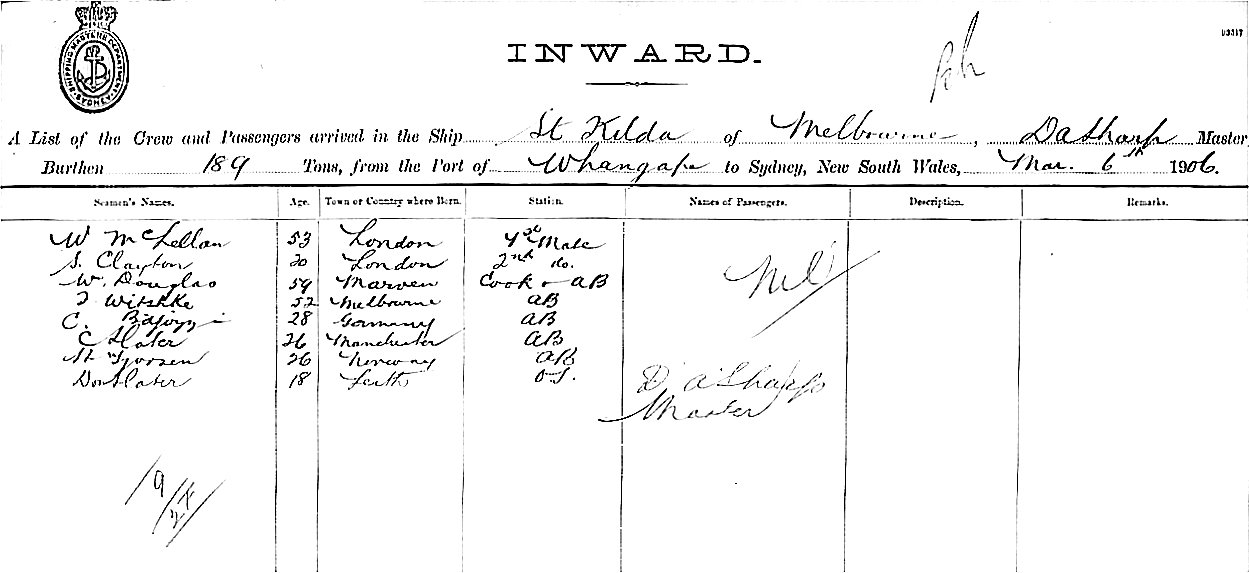 SHIPPING MASTERS DEPARTMENT SYDNEY
03317
INWARD.
A List of the Crew and Passengers arrived in the Ship St Kilda of Melbourne, DaSharp Master
Burthen 189 Tons, from the Port of Whangape to Sydney, New South Wales, Mar. 6th 1906.
Seamen's Names. Age. Town or Country where Born. Station. Names of Passengers. Description. Remarks.
W McLellan 53 London 1st Mate
S. Clayton 20 London 2nd do. Nil
W. Douglas 59 Cook & AB
Witshke 52 Melbourne AB
C. 28 Germany AB
C Slater 26 Manchester AB
26 Norway AB
Slater 18 Leith O.S. D A Sharp
Master